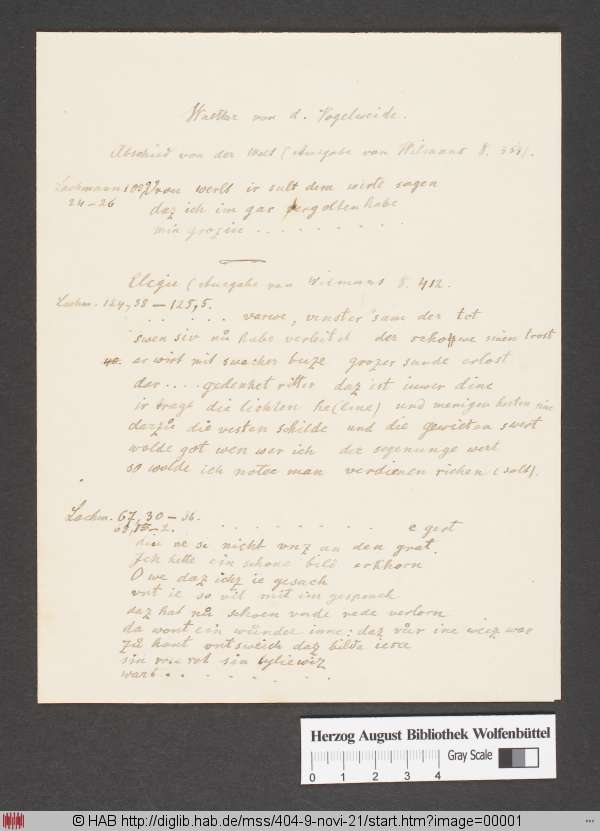 Walther von d. Vogelweide.
Abschied von der Welt (Ausgabe von Wilmans S. 358).
Lachmann 100, Vrou werlt ir sult dem wirte sagen
24-26 daz ich im gar vergolten habe
min grozin . . . . . . . . .
Elegie (Ausgabe von Wilmans S. 412.
Lachm. 124, 38 — 125, 5.
. . . . . . varwe, vinster sam der tot
swen siv nů habe verleitet der schowe sinen trost
40. er wirt mit swacher buze grozer sunde erlost
dar . . . . gedenket ritter daz ist iuwer dinc
ir traget die liehten he(lme) und manigen herten rinc
darzů die vesten schilde und die gewieten swert
wolde got wen wer ich der segenunge wert
so wolde ich notec man verdienen richen (solt).
Lachm. 67, 30 — 36.
68, — 2. . . . . . . . . . e gert
diu ne si nicht vnz an den grat.
Ich hette ein schone bilde erkhorn
O we daz ichz ie gesach
vnt ie so vil mit im gesprach
daz hat nů schoen unde rede verlorn
da wont ein wůnder inne: daz vůr ine weiz war
zů hant untsweich daz bilde
sin rot sin lyliewiz
wart . . . . . .
Herzog August Bibliothek Wolfenbüttel
0 1 2 3 4
Gray Scale
© HAB http://diglib.hab.de/mss/404-9-novi-21/start.htm?image=00001